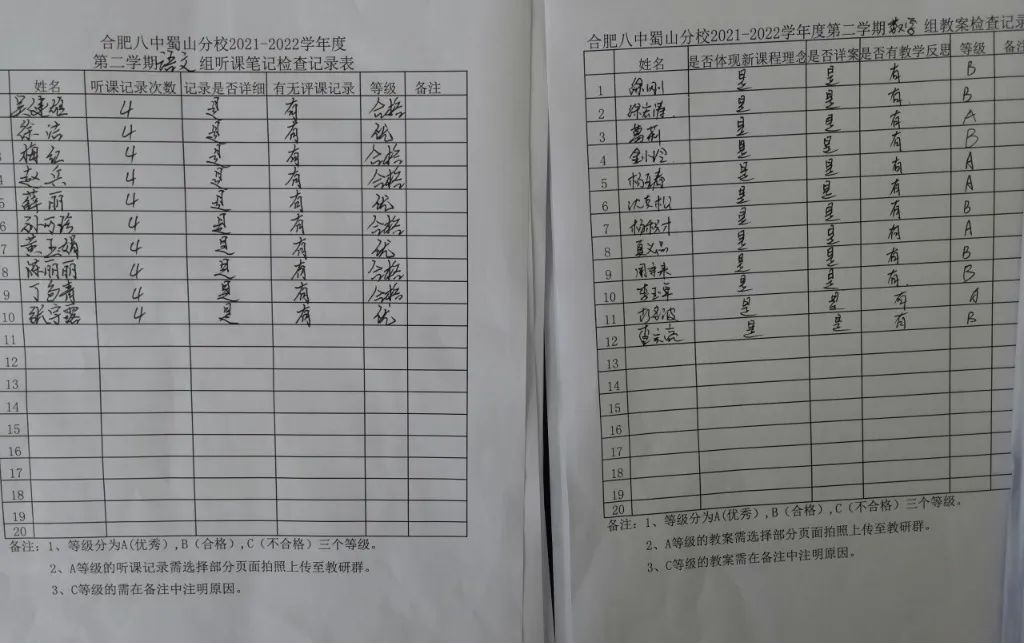 合肥八中蜀山分校2021-2022学年度
第二学期语文 组听课笔记检查记录表
姓名 听课记录次数 记录是否详细 有无评课记录 等级 备注
4 是 有 合格
徐洁 4 是 有 优
梅红 4 是 有 合格
赵兵 4 是 有 合格
5 薛丽 4 是 有 优
6 4 是 有 合格
7 黄玉娟 4 是 有 优
8 陈丽丽 4 是 有 合格
9 4 是 有 合格
10 4 是 有 优
11
12
13
14
15
16
17
18
19
20
备注：1、等级分为A(优秀）,B（合格）,C（不合格）三个等级。
2、A等级的听课记录需选择部分页面拍照上传至教研群。
3、C等级的需在备注中注明原因。
合肥八中蜀山分校2021-2022学年度第二学期数学 组教案检查记录
姓名 是否体现新课程理念 是否详案 是否有教学反思 等级 备注
1 徐刚 是 是 有 B
2 是 是 有 B
3 葛莉 是 是 有 A
4 是 是 有 B
5 是 是 有 A
6 是 是 有 A
7 是 是 有 B
8 是 是 有 A
9 是 是 有 B
10 是 是 有 B
11 是 是 有 A
12 是 是 有 B
13
14
15
16
17
18
19
20
备注：1、等级分为A(优秀）,B（合格）,C（不合格）三个等级。
2、A等级的教案需选择部分页面拍照上传至教研群。
3、C等级的教案需在备注中注明原因。